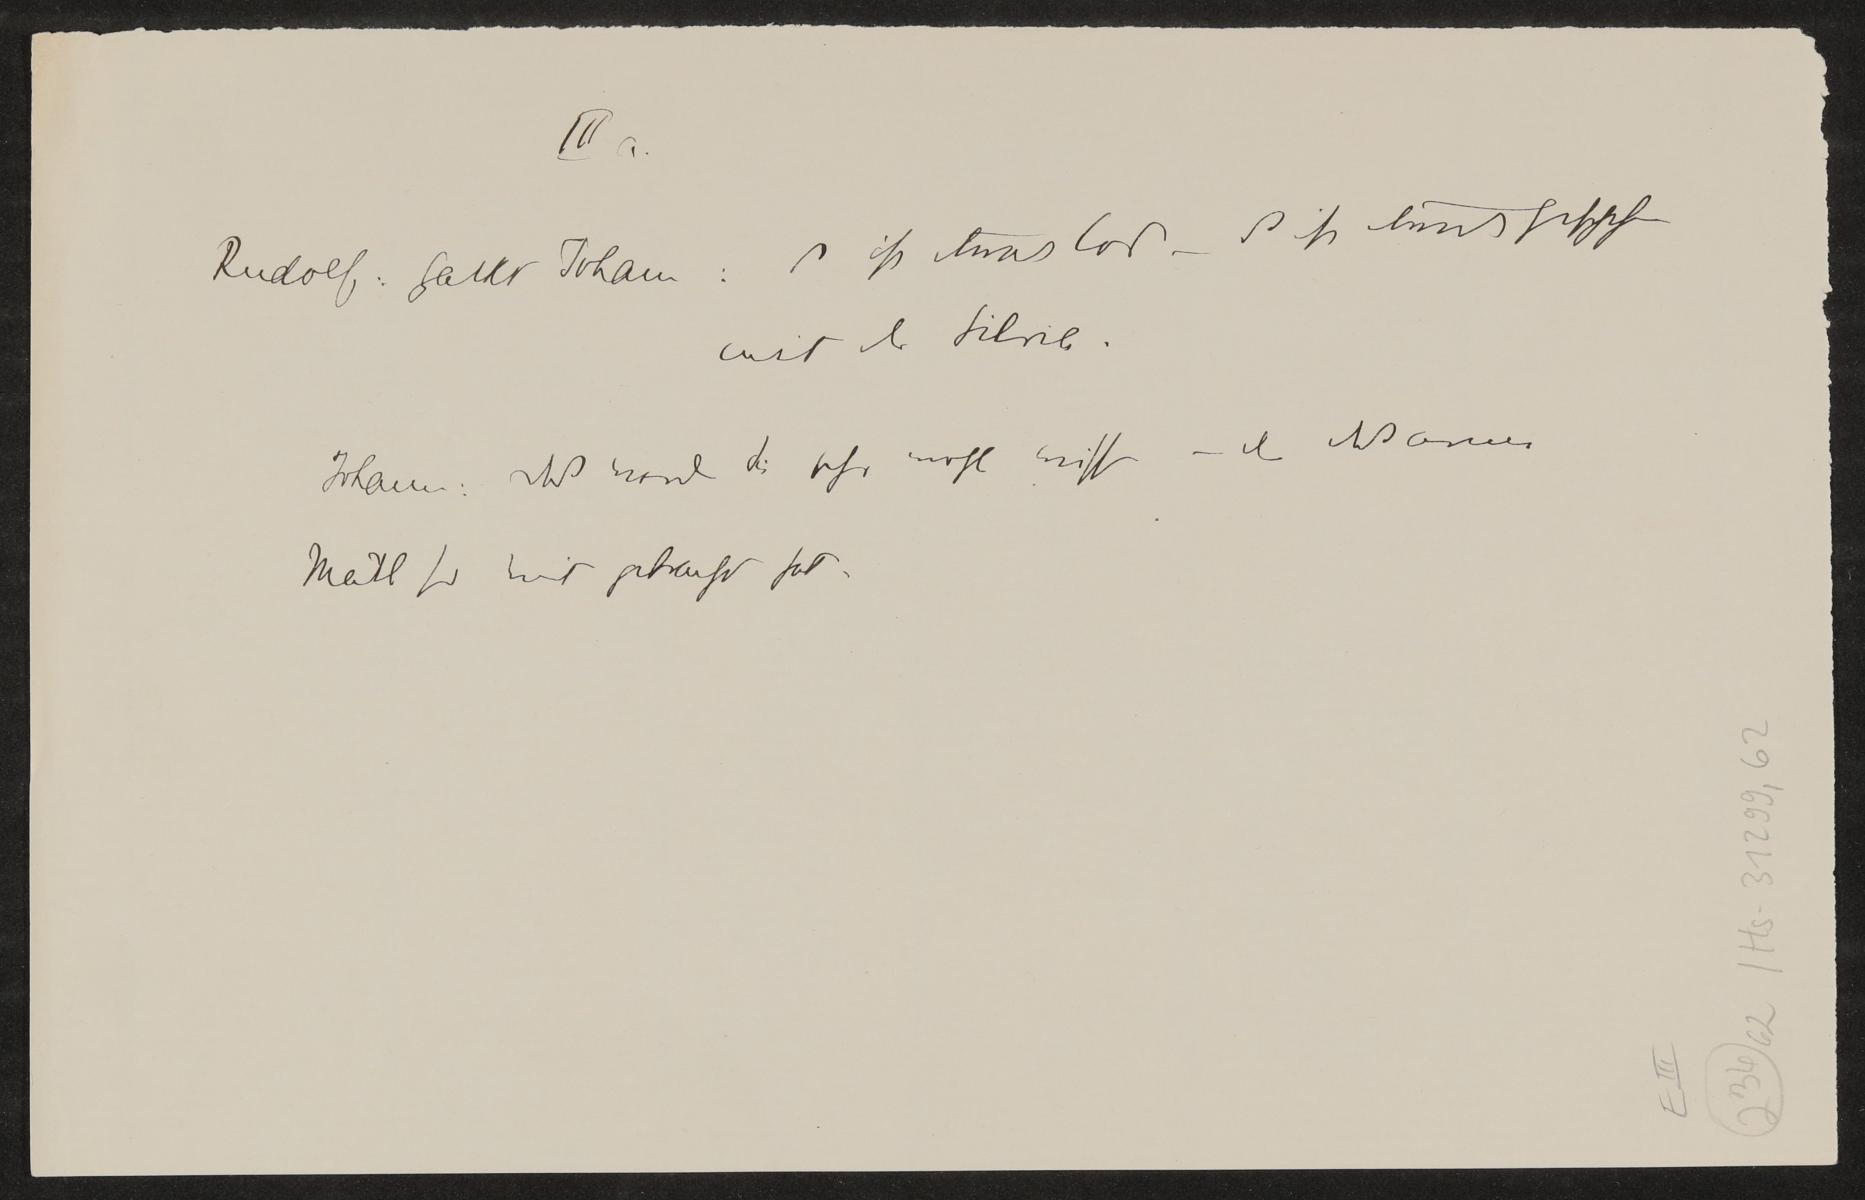 III a.
Rudolf: packt Johann: s ist etwas los – s ist etwas geschehn
mit der Silvie.
Johann: das werd die sehr wohl wissen – der das arme
Mädl her mit gebracht hat.
E III
234/62 /Hs-31299,62